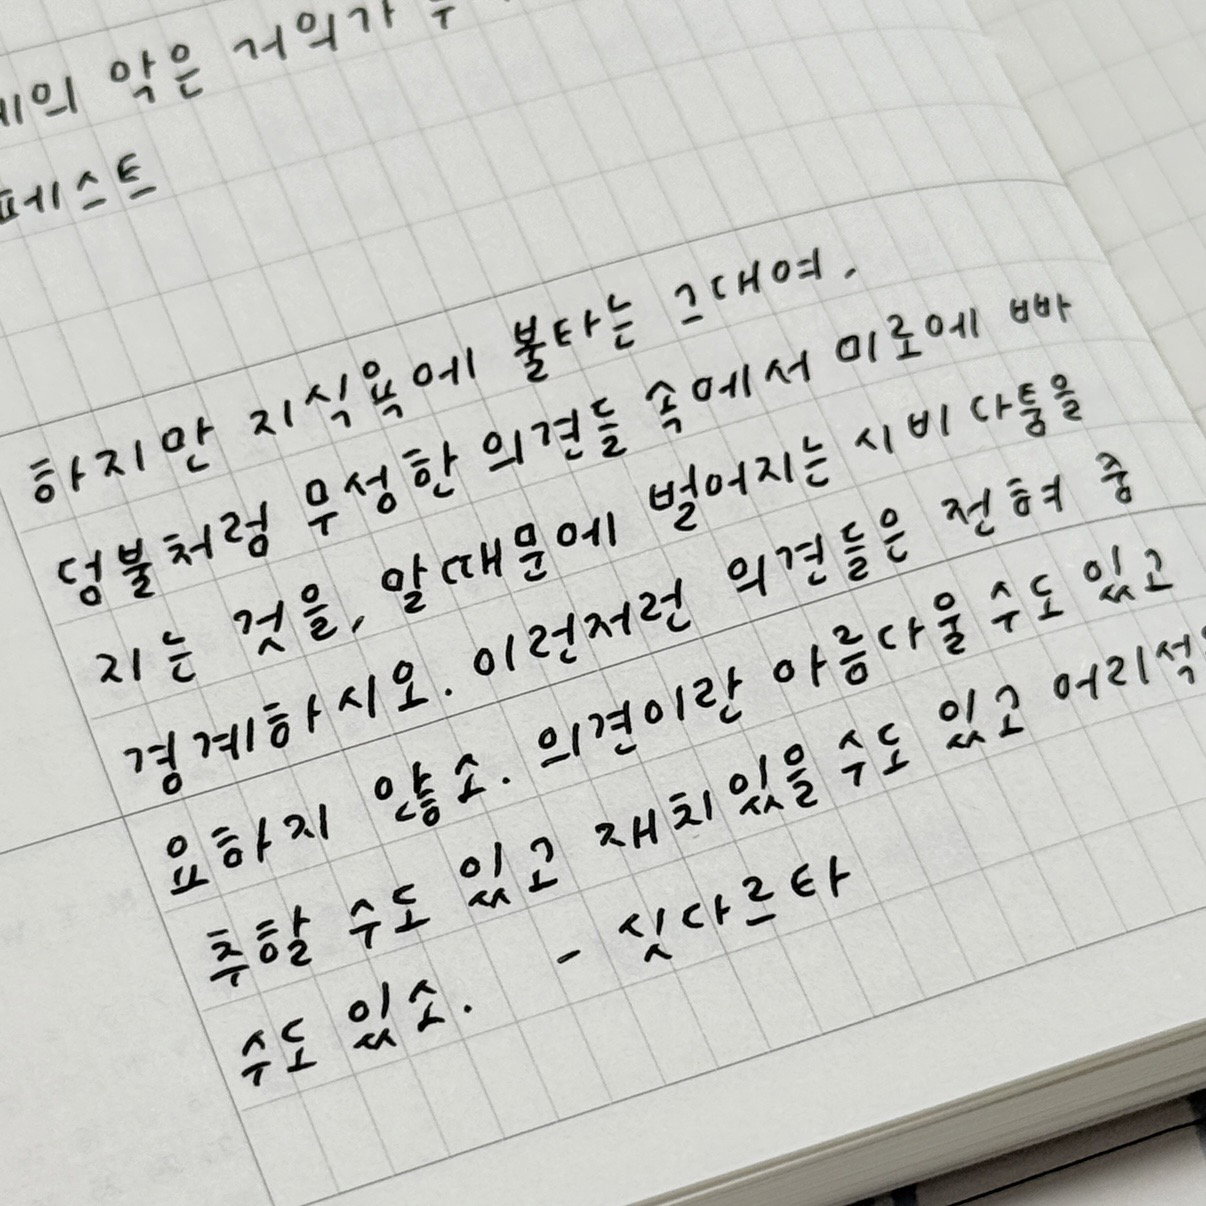 악은 거의가
페스트
하지만 지식욕에 불타는 그대여.
덤불처럼 무성한 의견들 속에서 미로에 빠
지는 것을, 말때문에 벌어지는 시비다툼을
경계하시오. 이런저런 의견들은 전혀 중
요하지 않소. 의견이란 아름다울 수도 있고
추할 수도 있고 재치있을 수도 있고 어리석
수도 있소. - 싯다르타